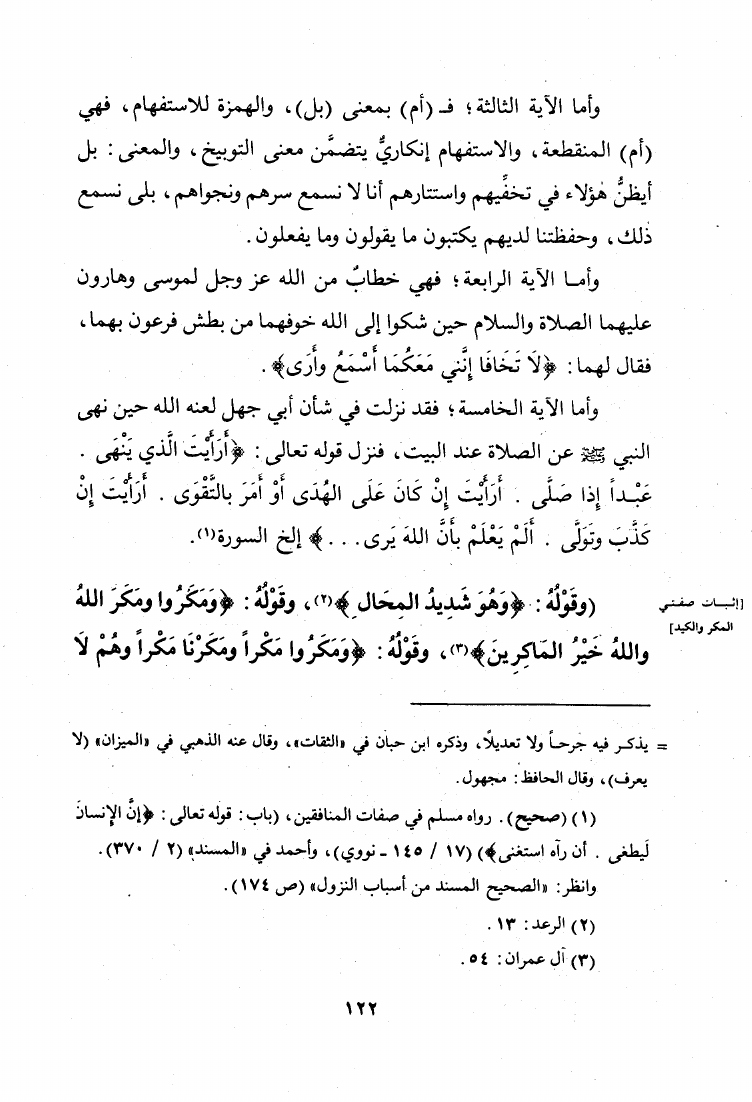 وأما الآية الثالثة؛ فـ (أم) بمعنى (بل)، والهمزة للاستفهام، فهي
(أم) المنقطعة، والاستفهام إنكاريٌّ يتضمَّن معنى التوبيخ، والمعنى: بل
أيظنُّ هٰؤلاء في تخفِّيهم واستتارهم أنا لا نسمع سرهم ونجواهم، بلى نسمع
ذلك، وحفظتنا لديهم يكتبون ما يقولون وما يفعلون.
وأمـا الآية الرابعة؛ فهي خطابٌ من الله عز وجل لموسى وهارون
عليهما الصلاة والسلام حين شكوا إلى الله خوفهما من بطش فرعون بهما،
فقال لهما: ﴿لَا تَخَافَا إِنَّنِي مَعَكُمَا أَسْمَعُ وأَرَى﴾.
وأما الآية الخامسة؛ فقد نزلت في شأن أبي جهل لعنه الله حين نهى
النبي ﷺ عن الصلاة عند البيت، فنزل قوله تعالى: ﴿أَرَأَيْتَ الَّذي يَنْهَى .
عَبْـداً إِذا صَلَّى . أَرَأَيْتَ إِنْ كانَ عَلى الهُدَى أَوْ أَمَرَ بالتَّقْوَى . أَرَأَيْتَ إِنْ
كَذَّبَ وتَوَلَّى . أَلَمْ يَعْلَمْ بأَنَّ اللهَ يَرى...﴾ إلخ السورة(١).
(وقَوْلُهُ: ﴿وَهُوَ شَديدُ المِحَالِ﴾(٢)، وقَوْلُهُ: ﴿ومَكَرُوا ومَكَرَ اللهُ
[إثبـات صفتي
واللهُ خَيْرُ المَاكِرِينَ﴾(٣)، وقَوْلُهُ: ﴿وَمَكَرُوا مَكْراً ومَكَرْنَا مَكْراً وهُمْ لَا
المكر والكيد]
= يذكـر فيه جرحـاً ولا تعديلًا، وذكره ابن حبان في «الثقات»، وقال عنه الذهبي في «الميزان» (لا
يعرف)، وقال الحافظ: مجهول.
(١) (صحيح). رواه مسلم في صفات المنافقين، (باب: قوله تعالى: ﴿إِنَّ الإِنْسانَ
لَيطغى . أن رآه استغنى﴾) (١٧ / ١٤٥ ـ نووي)، وأحمد في «المسند» (٢ / ٣٧٠).
وانظر: «الصحيح المسند من أسباب النزول» (ص ١٧٤).
(٢) الرعد: ١٣.
(٣) آل عمران: ٥٤.
١٢٢